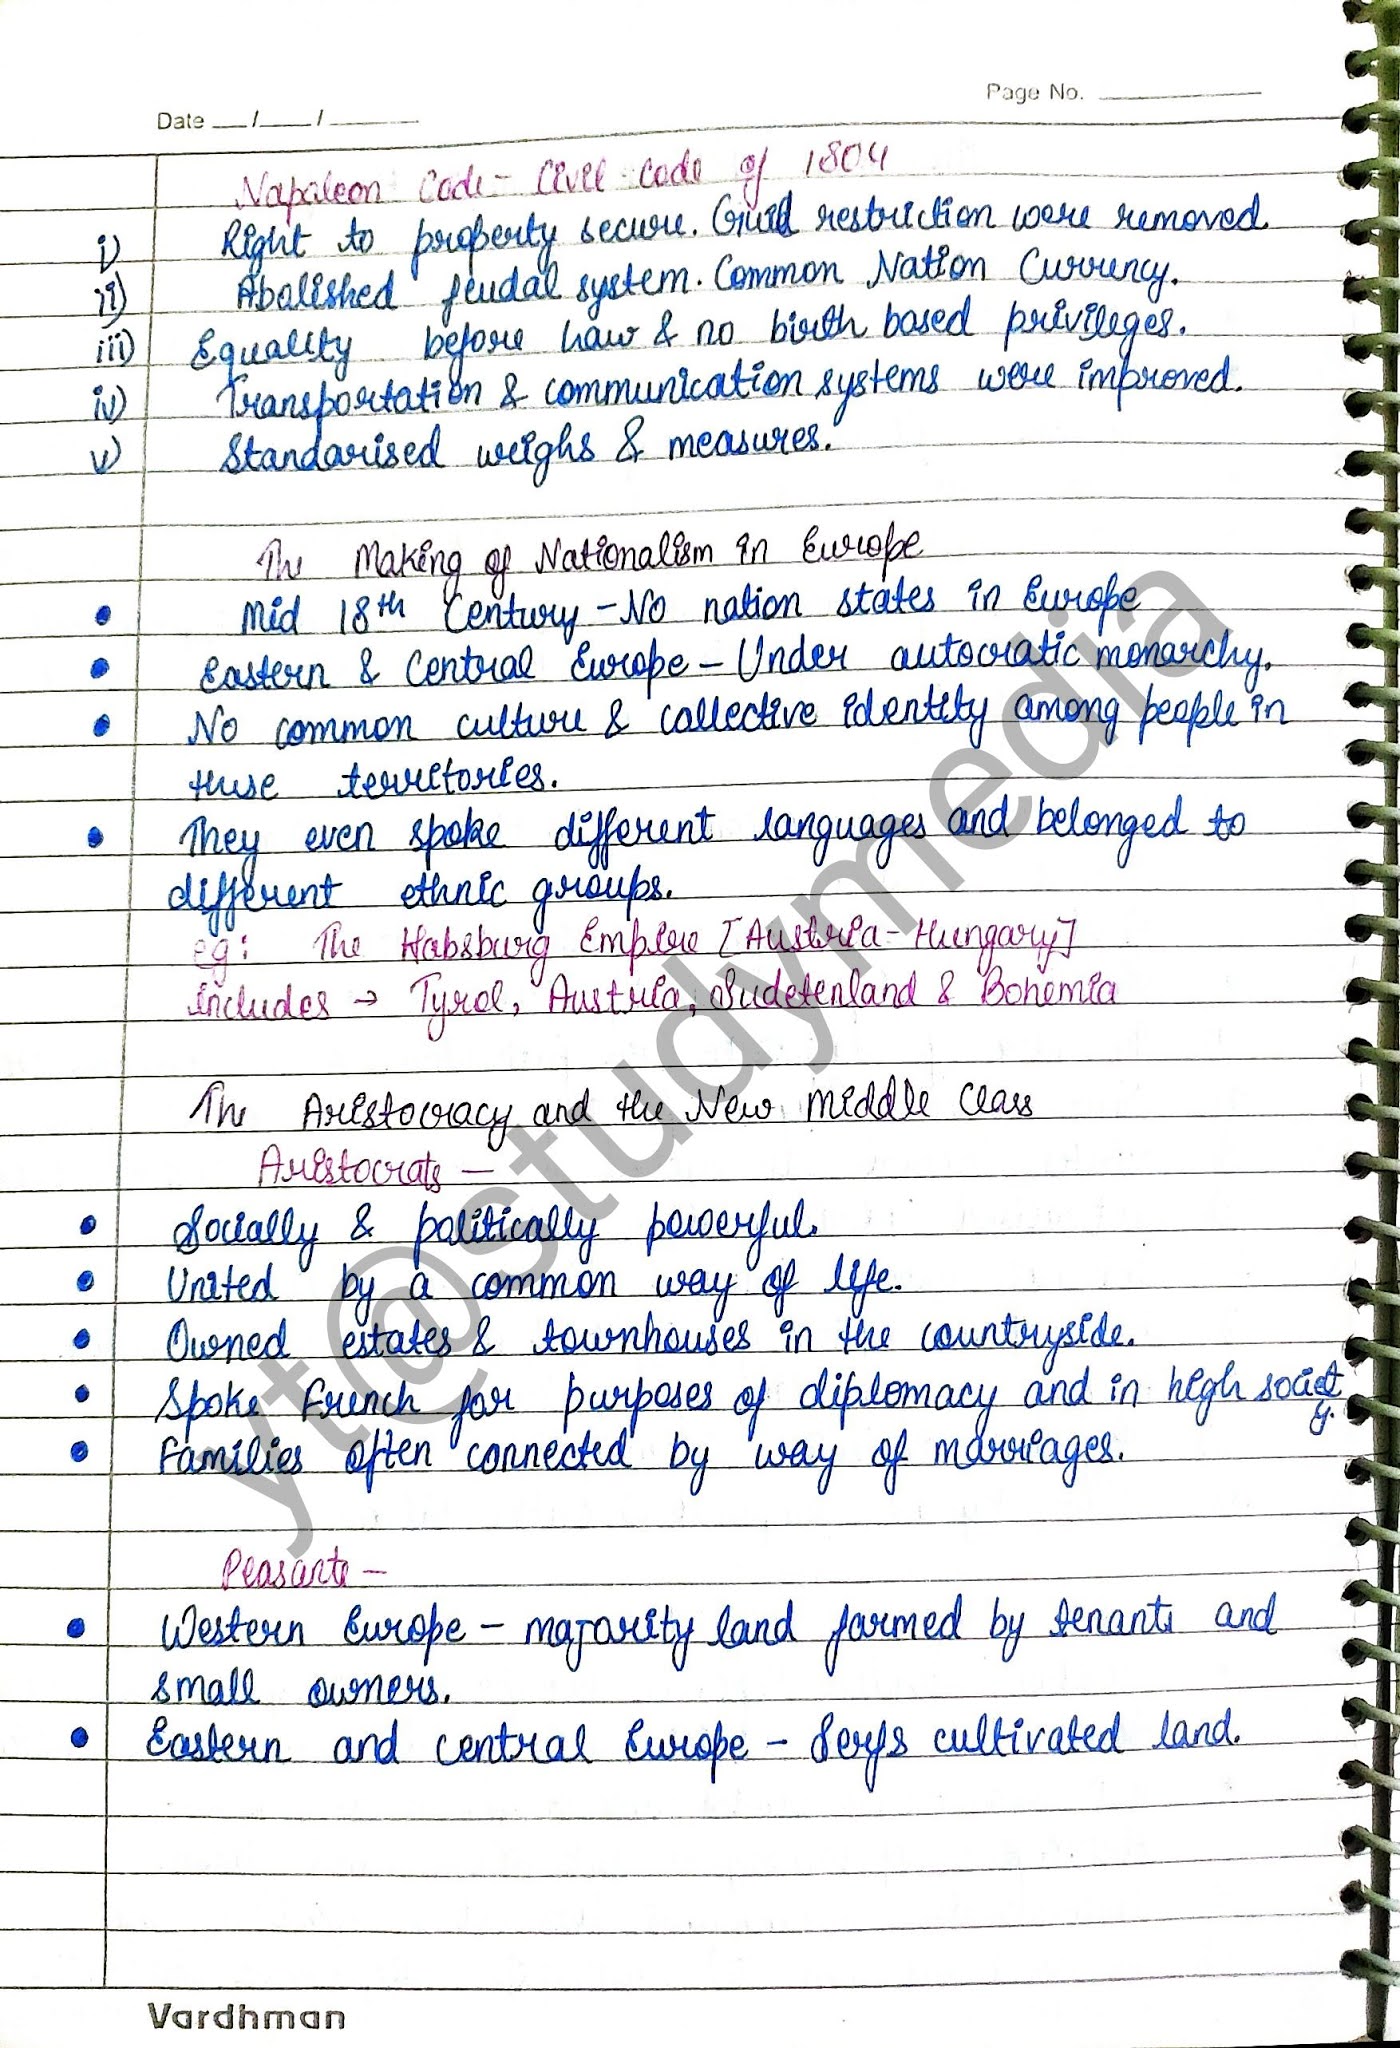 Page No.
Date __/__/__
Napoleon Code - Civil Code of 1804
i) Right to property secure. Guild restriction were removed.
ii) Abolished feudal system. Common Nation Currency.
iii) Equality before Law & no birth based privileges.
iv) Transportation & communication systems were improved.
v) Standarised weighs & measures.
The Making of Nationalism in Europe
• Mid 18th Century - No nation states in Europe
• Eastern & Central Europe - Under autocratic monarchy.
• No common culture & collective identity among people in
these territories.
• They even spoke different languages and belonged to
different ethnic groups.
eg: The Habsburg Empire [Austria-Hungary]
includes → Tyrol, Austria, Sudetenland & Bohemia
The Aristocracy and the New Middle Class
Aristocrats —
• Socially & politically powerful.
• United by a common way of life.
• Owned estates & townhouses in the countryside.
• Spoke French for purposes of diplomacy and in high society.
• Families often connected by way of marriages.
Peasants —
• Western Europe - majority land farmed by tenants and
small owners.
• Eastern and central Europe - Serfs cultivated land.
Vardhman
yt@studymedia